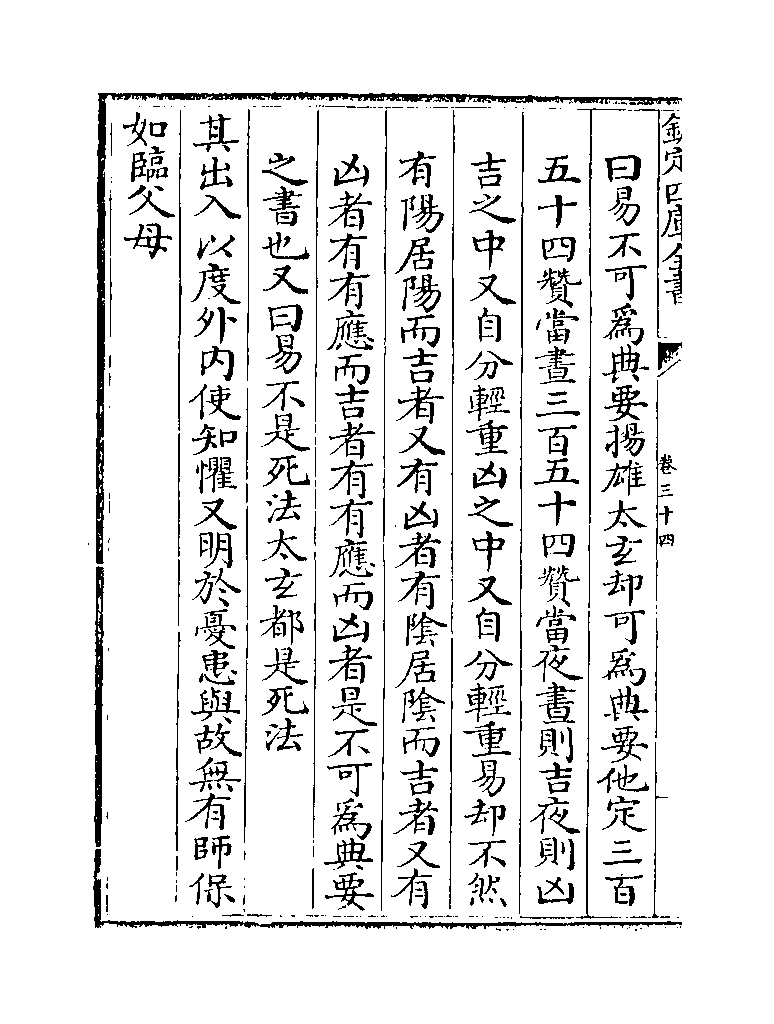 欽定四庫全書
卷三十四
曰易不可為典要揚雄太玄却可為典要他定三百
五十四贊當晝三百五十四贊當夜晝則吉夜則凶
吉之中又自分輕重凶之中又自分輕重易却不然
有陽居陽而吉者又有凶者有陰居陰而吉者又有
凶者有有應而吉者有有應而凶者是不可為典要
之書也又曰易不是死法太玄都是死法
其出入以度外内使知懼又明於憂患與故無有師保
如臨父母